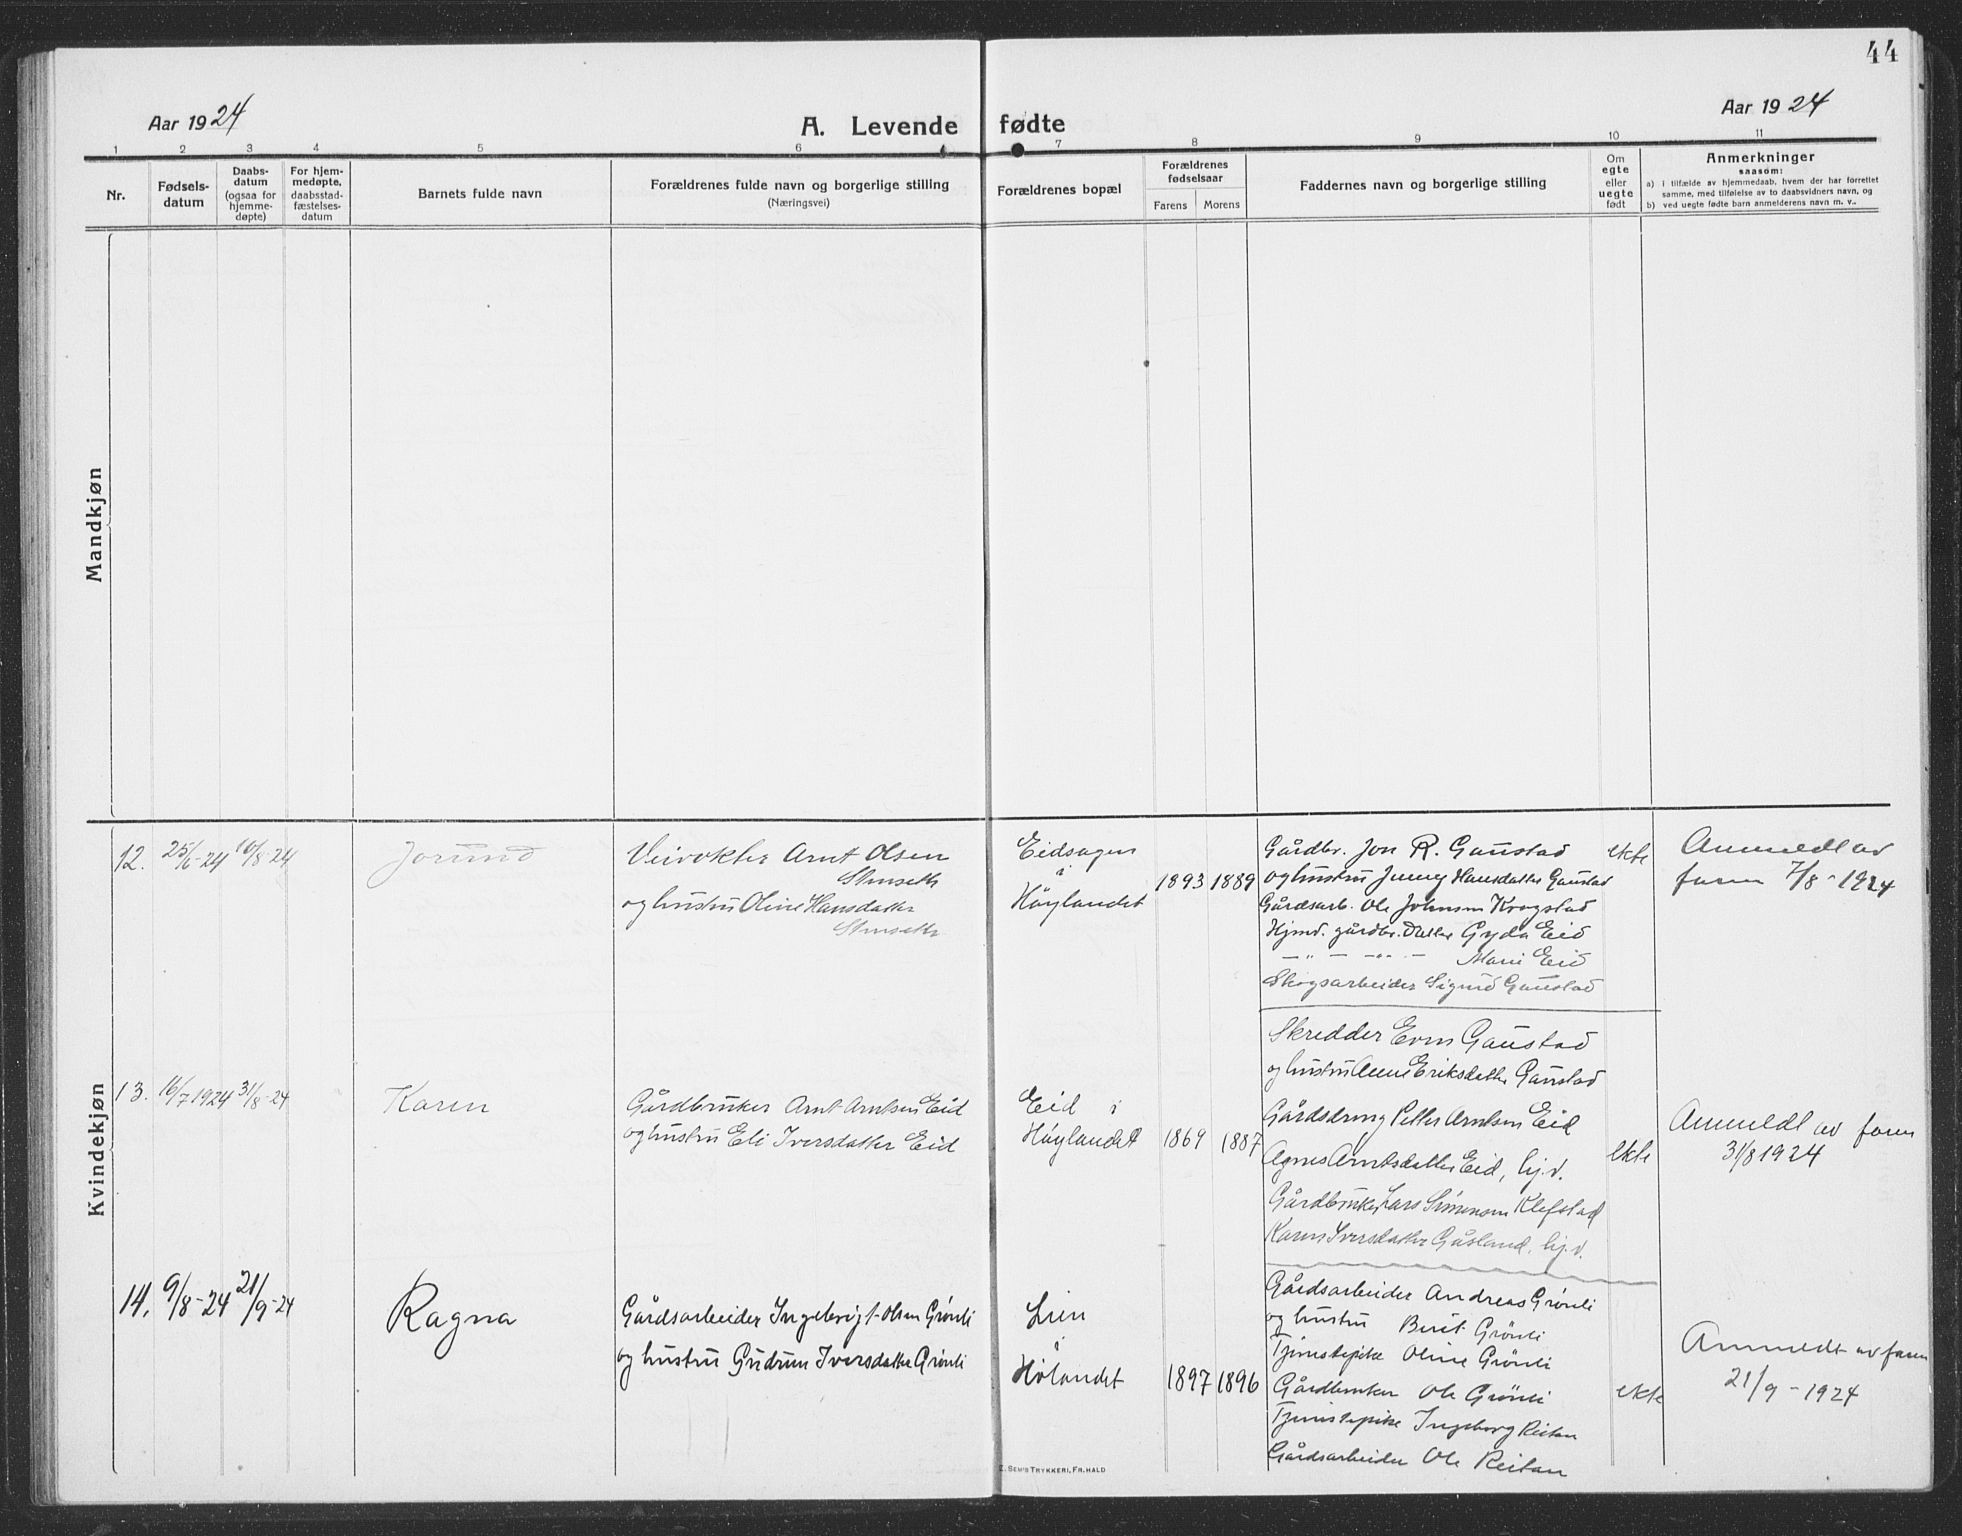 44
Aar 1924
A. Levende fødte
Aar 1924
1 2 3 4 5 6 7 8 9 10 11
Nr.
Fødsels-
datum
Daabs-
datum
(ogsaa for
hjemme-
døpte)
For hjem-
medøpte,
daabsstad-
fæstelses-
datum
Barnets fulde navn
Forældrenes fulde navn og borgerlige stilling
(Næringsvei)
Forældrenes bopæl
Forældrenes
fødselsaar
Farens Morens
Faddernes navn og borgerlige stilling
Om
egte
eller
uegte
født
Anmerkninger
saasom:
a) i tilfælde av hjemmedaab, hvem der har forrettet
samme, med tilføielse av to daabsvidners navn, og
b) ved uegte fødte barn anmelderens navn m. v..
Mandkjøn
Kvindekjøn
12. 25/6-24 10/8-24
Jorund
Veivokter Arnt Olsen
Stenseth
og hustru Oline Hansdatter
Stenseth
Eidsagen
i
Höylandet
1893 1889
Gårdbr. Jon R. Gaustad
og hustru Jenny Hansdatter Gaustad
Gårdsarb. Ole Johnsen Krogstad
Hjmd. gårdbr. datter Gyda Eid
— " — — " — Marie Eid
Skogsarbeider Sigurd Gaustad
ekte
Anmeldt av
faren 7/8-1924
13. 16/7 1924 31/8-24
Karen
Gårdbruker Arnt Arntsen Eid
og hustru Eli Iversdatter Eid
Eid i
Höylandet
1869 1887
Skredder Even Gaustad
og hustru Anne Eriksdatter Gaustad
Gårdsdreng Petter Arntsen Eid
Agnes Arntsdatter Eid, hj.v.
Gårdbruker Lars Simensen Klefstad
Karen Iversdatter Gåsland, hj.v.
ekte
Anmeldt av faren
31/8 1924
14. 9/8-24 21/9-24
Ragna
Gårdsarbeider Ingebrigt Olsen Grönli
og hustru Gudrun Iversdatter Grönli
Lien
i
Hölandet
1897 1896
Gårdsarbeider Andreas Grönli
og hustru Berit Grönli
Tjenestepike Oline Grönli
Gårdbruker Ole Grönli
Tjenestepike Ingeborg Reitan
Gårdsarbeider Ole Reitan
ekte
Anmeldt av faren
21/9-1924
E. SEM'S TRYKKERI, FR.HALD